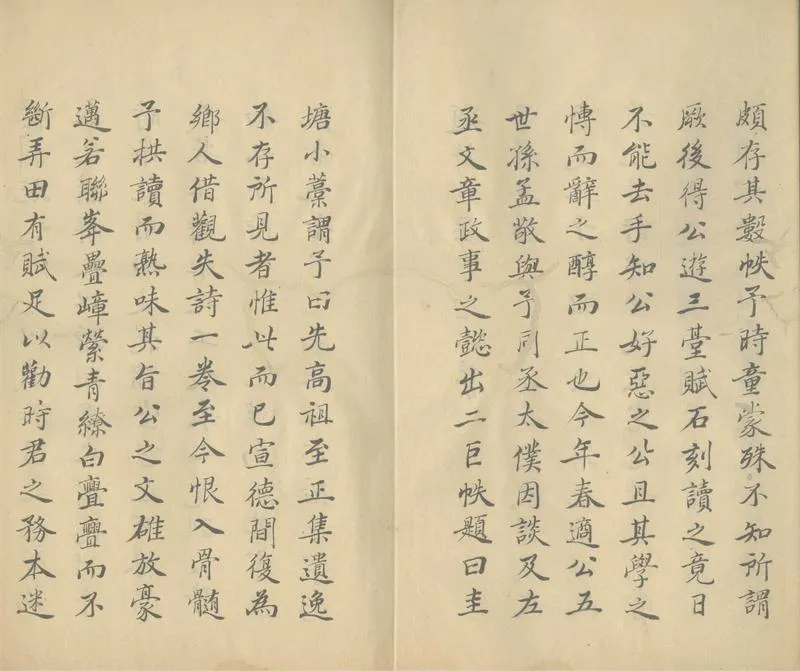 頗存其數帙予時童蒙殊不知所謂
厥後得公遊三臺賦石刻讀之竟日
不能去手知公好惡之公且其學之
慱而辭之醇而正也今年春適公五
世孫孟敬與予同丞太僕因談及左
丞文章政事之懿出二巨帙題曰圭
塘小藁謂予曰先高祖至正集遺逸
不存所見者惟此而已宣德間復為
鄉人借觀失詩一卷至今恨入骨髓
予拱讀而熟味其旨公之文雄放豪
邁若聯峯疊嶂縈青繚白亹亹而不
斷弄田有賦足以勸時君之務本迷